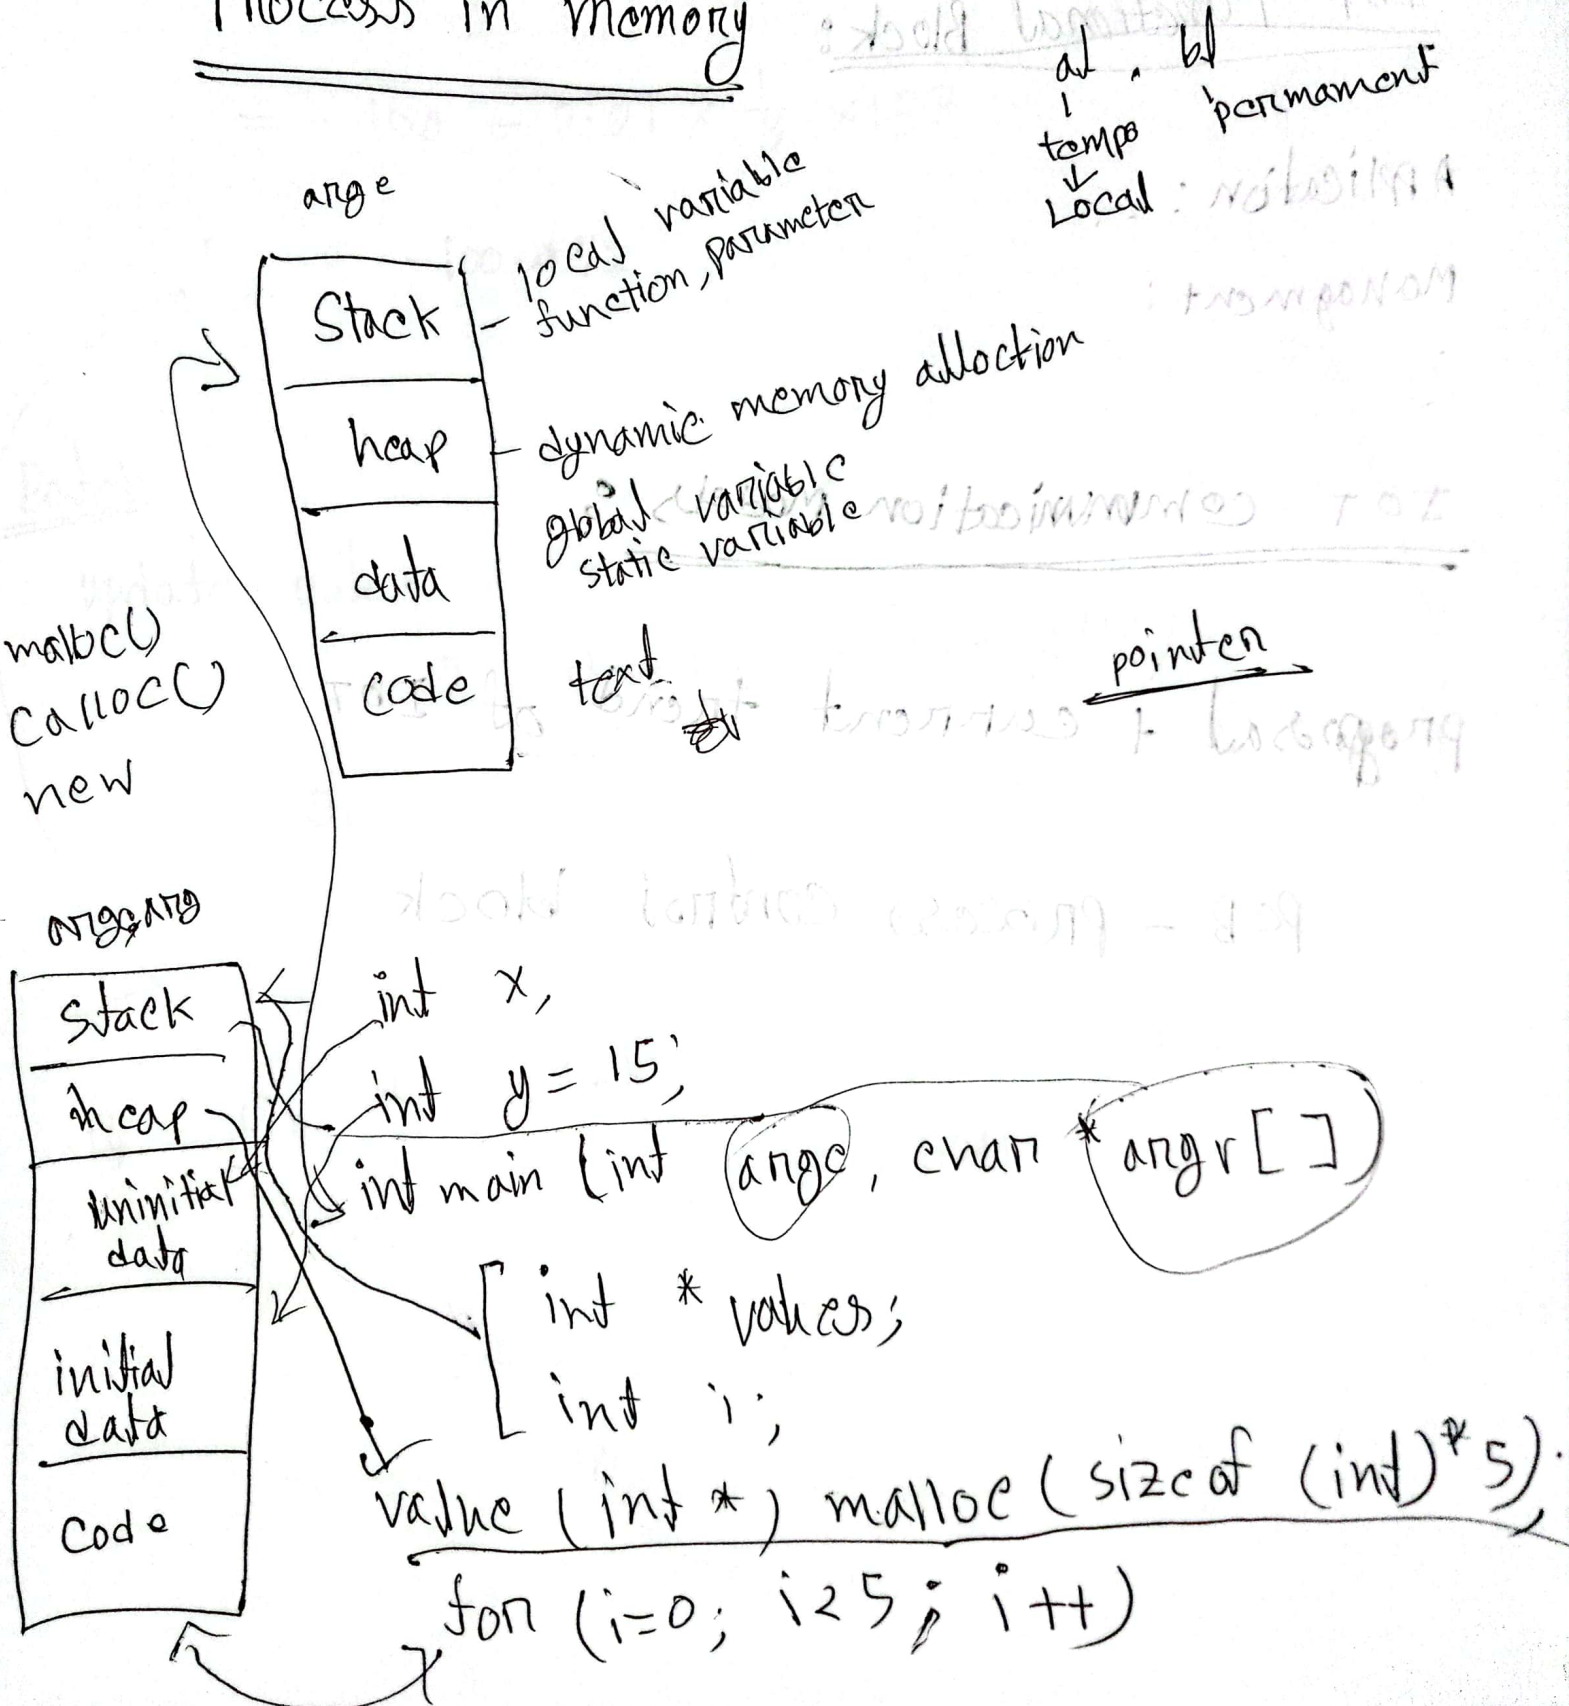 Process in memory
al , bl
tempo permament
Local
arge
Stack
local variable
function, parameter
heap
dynamic memory alloction
data
global variable
static variable
code
text
pointer
malloc()
calloc()
new
stack
heap
uninitial
data
initial
data
Code
int x,
int y = 15;
int main (int argc, char * argv[])
int * values;
int i;
value (int *) malloc (sizeof (int) * 5);
for (i=0; i<5; i++)